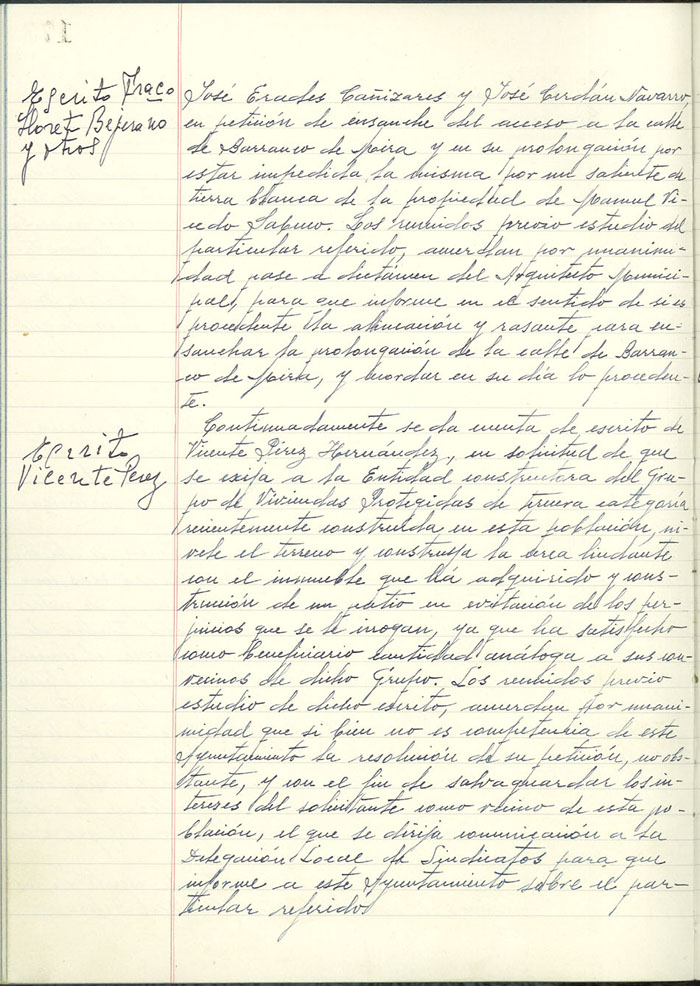 Escrito Fraco
Lloret Bejerano
y otros
José Erades Cañizares y José Cerdán Navarro
en petición de ensanche del acceso a la calle
de Barranco de Moira y en su prolongación por
estar impedida la misma por un saliente de
tierra blanca de la propiedad de Manuel Vi-
cedo Sabuco. Los reunidos previo estudio del
particular referido, acuerdan por unanimi-
dad pase a dictámen del Arquitecto Munici-
pal, para que informe en el sentido de si es
procedente la alineación y rasante para en-
sanchar la prolongación de la calle de Barran-
co de Moira, y acordar en su día lo proceden-
te.
Escrito
Vicente Pérez
Continuadamente se da cuenta de escrito de
Vicente Pérez Hernández, en solicitud de que
se exija a la Entidad constructora del Gru-
po de Viviendas Protegidas de tercera categoría
recientemente construida en esta población, ni-
vele el terreno y construya la acera lindante
con el inmueble que há adquirido y cons-
trucción de un patio en evitación de los per-
juicios que se le irrogan, ya que ha satisfecho
como beneficiario cantidad análoga a sus con-
vecinos de dicho Grupo. Los reunidos previo
estudio de dicho escrito, acuerdan por unani-
midad que si bien no es competencia de este
Ayuntamiento la resolución de su petición, no obs-
tante, y con el fin de salvaguardar los in-
tereses del solicitante como vecino de esta po-
blación, el que se dirija comunicación a la
Delegación Local de Sindicatos para que
informe a este Ayuntamiento sobre el par-
ticular referido.